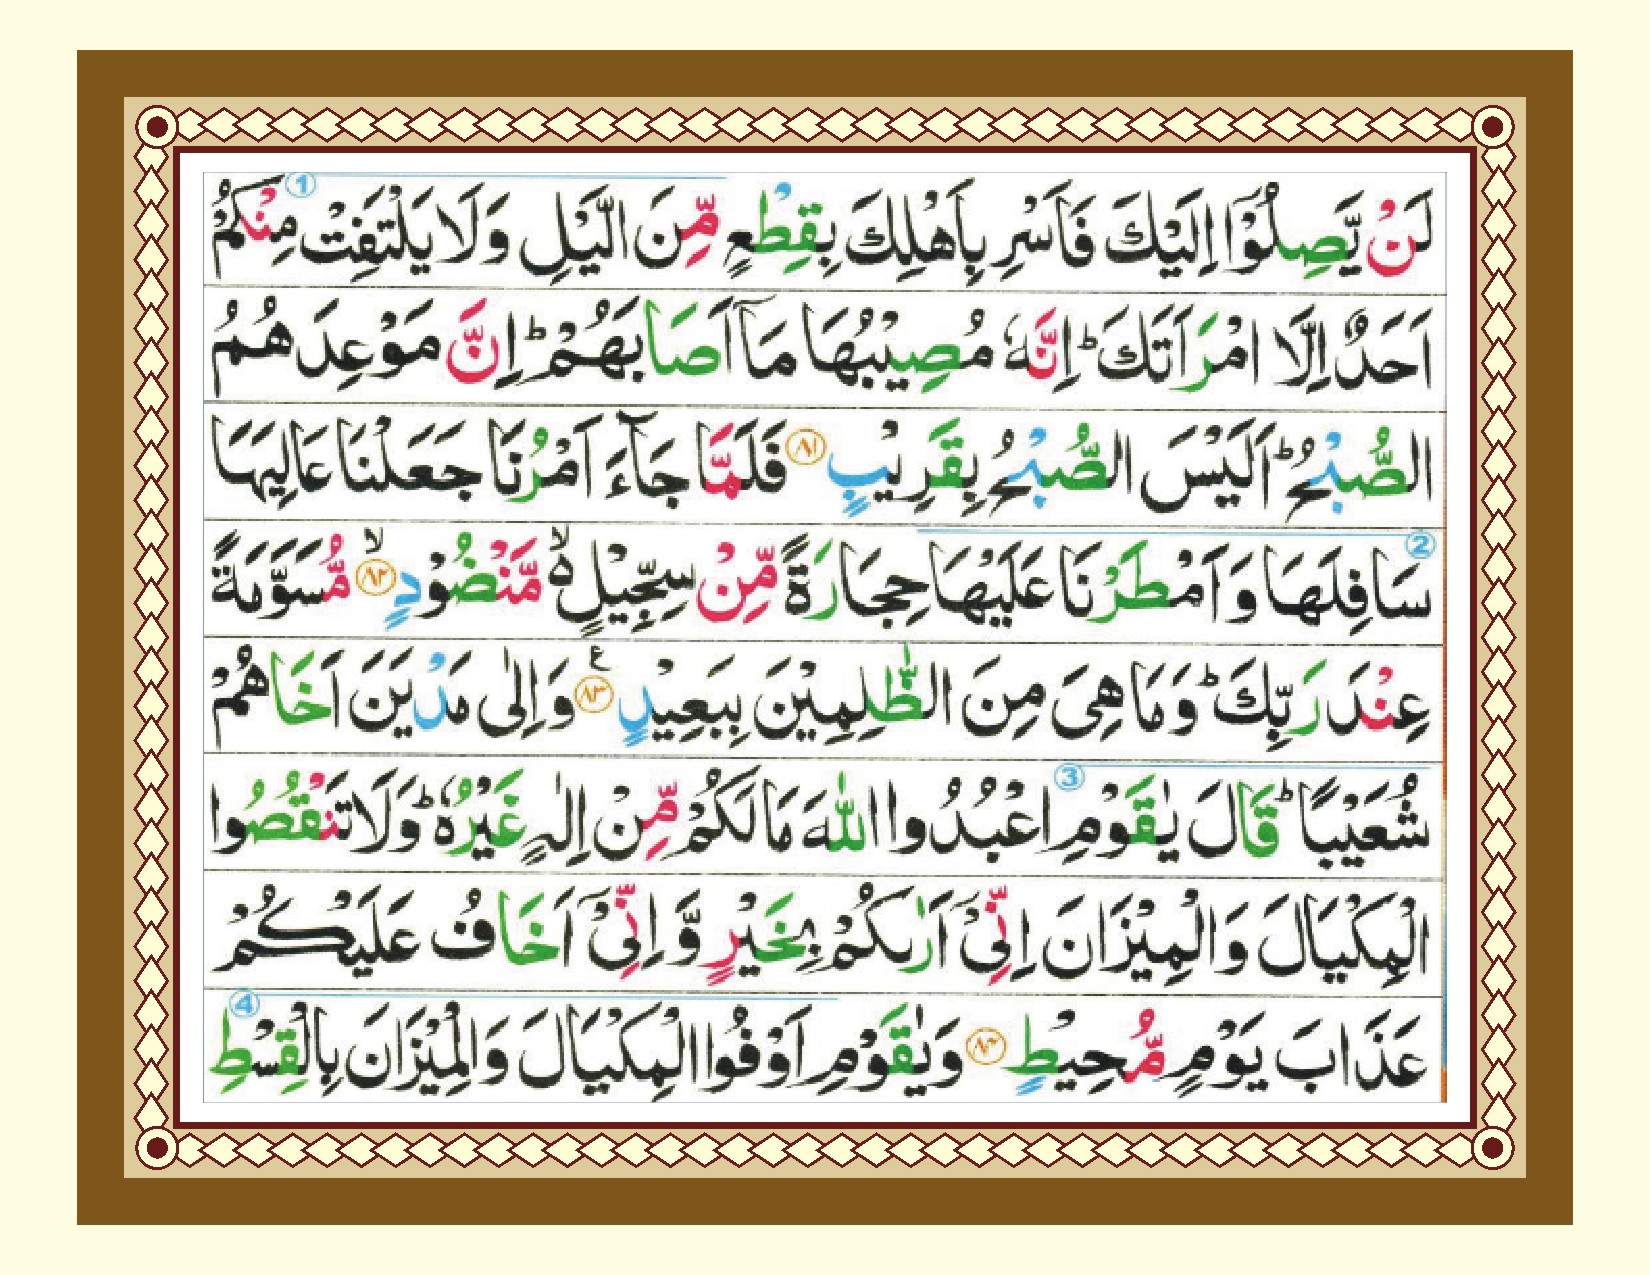 ①
لَنْ يَّصِلُوْۤا اِلَيْكَ فَاَسْرِ بِاَهْلِكَ بِقِطْعٍ مِّنَ الَّيْلِ وَلَا يَلْتَفِتْ مِنْكُمْ
اَحَدٌ اِلَّا امْرَاَتَكَ ؕ اِنَّهٗ مُصِيْبُهَا مَاۤ اَصَابَهُمْ ؕ اِنَّ مَوْعِدَهُمُ
الصُّبْحُ ؕ اَلَيْسَ الصُّبْحُ بِقَرِيْبٍ ﴿۸۱﴾ فَلَمَّا جَآءَ اَمْرُنَا جَعَلْنَا عَالِيَهَا
②
سَافِلَهَا وَاَمْطَرْنَا عَلَيْهَا حِجَارَةً مِّنْ سِجِّيْلٍ ۙ۬ مَّنْضُوْدٍ ۙ﴿۸۲﴾ مُّسَوَّمَةً
عِنْدَ رَبِّكَ ؕ وَمَا هِىَ مِنَ الظّٰلِمِيْنَ بِبَعِيْدٍ ﴿۸۳﴾ ع وَاِلٰى مَدْيَنَ اَخَاهُمْ
③
شُعَيْبًا ؕ قَالَ يٰقَوْمِ اعْبُدُوا اللّٰهَ مَا لَكُمْ مِّنْ اِلٰهٍ غَيْرُهٗ ؕ وَلَا تَنْقُصُوا
الْمِكْيَالَ وَالْمِيْزَانَ اِنِّىْۤ اَرٰىكُمْ بِخَيْرٍ وَّاِنِّىْۤ اَخَافُ عَلَيْكُمْ
④
عَذَابَ يَوْمٍ مُّحِيْطٍ ﴿۸۴﴾ وَيٰقَوْمِ اَوْفُوا الْمِكْيَالَ وَالْمِيْزَانَ بِالْقِسْطِ